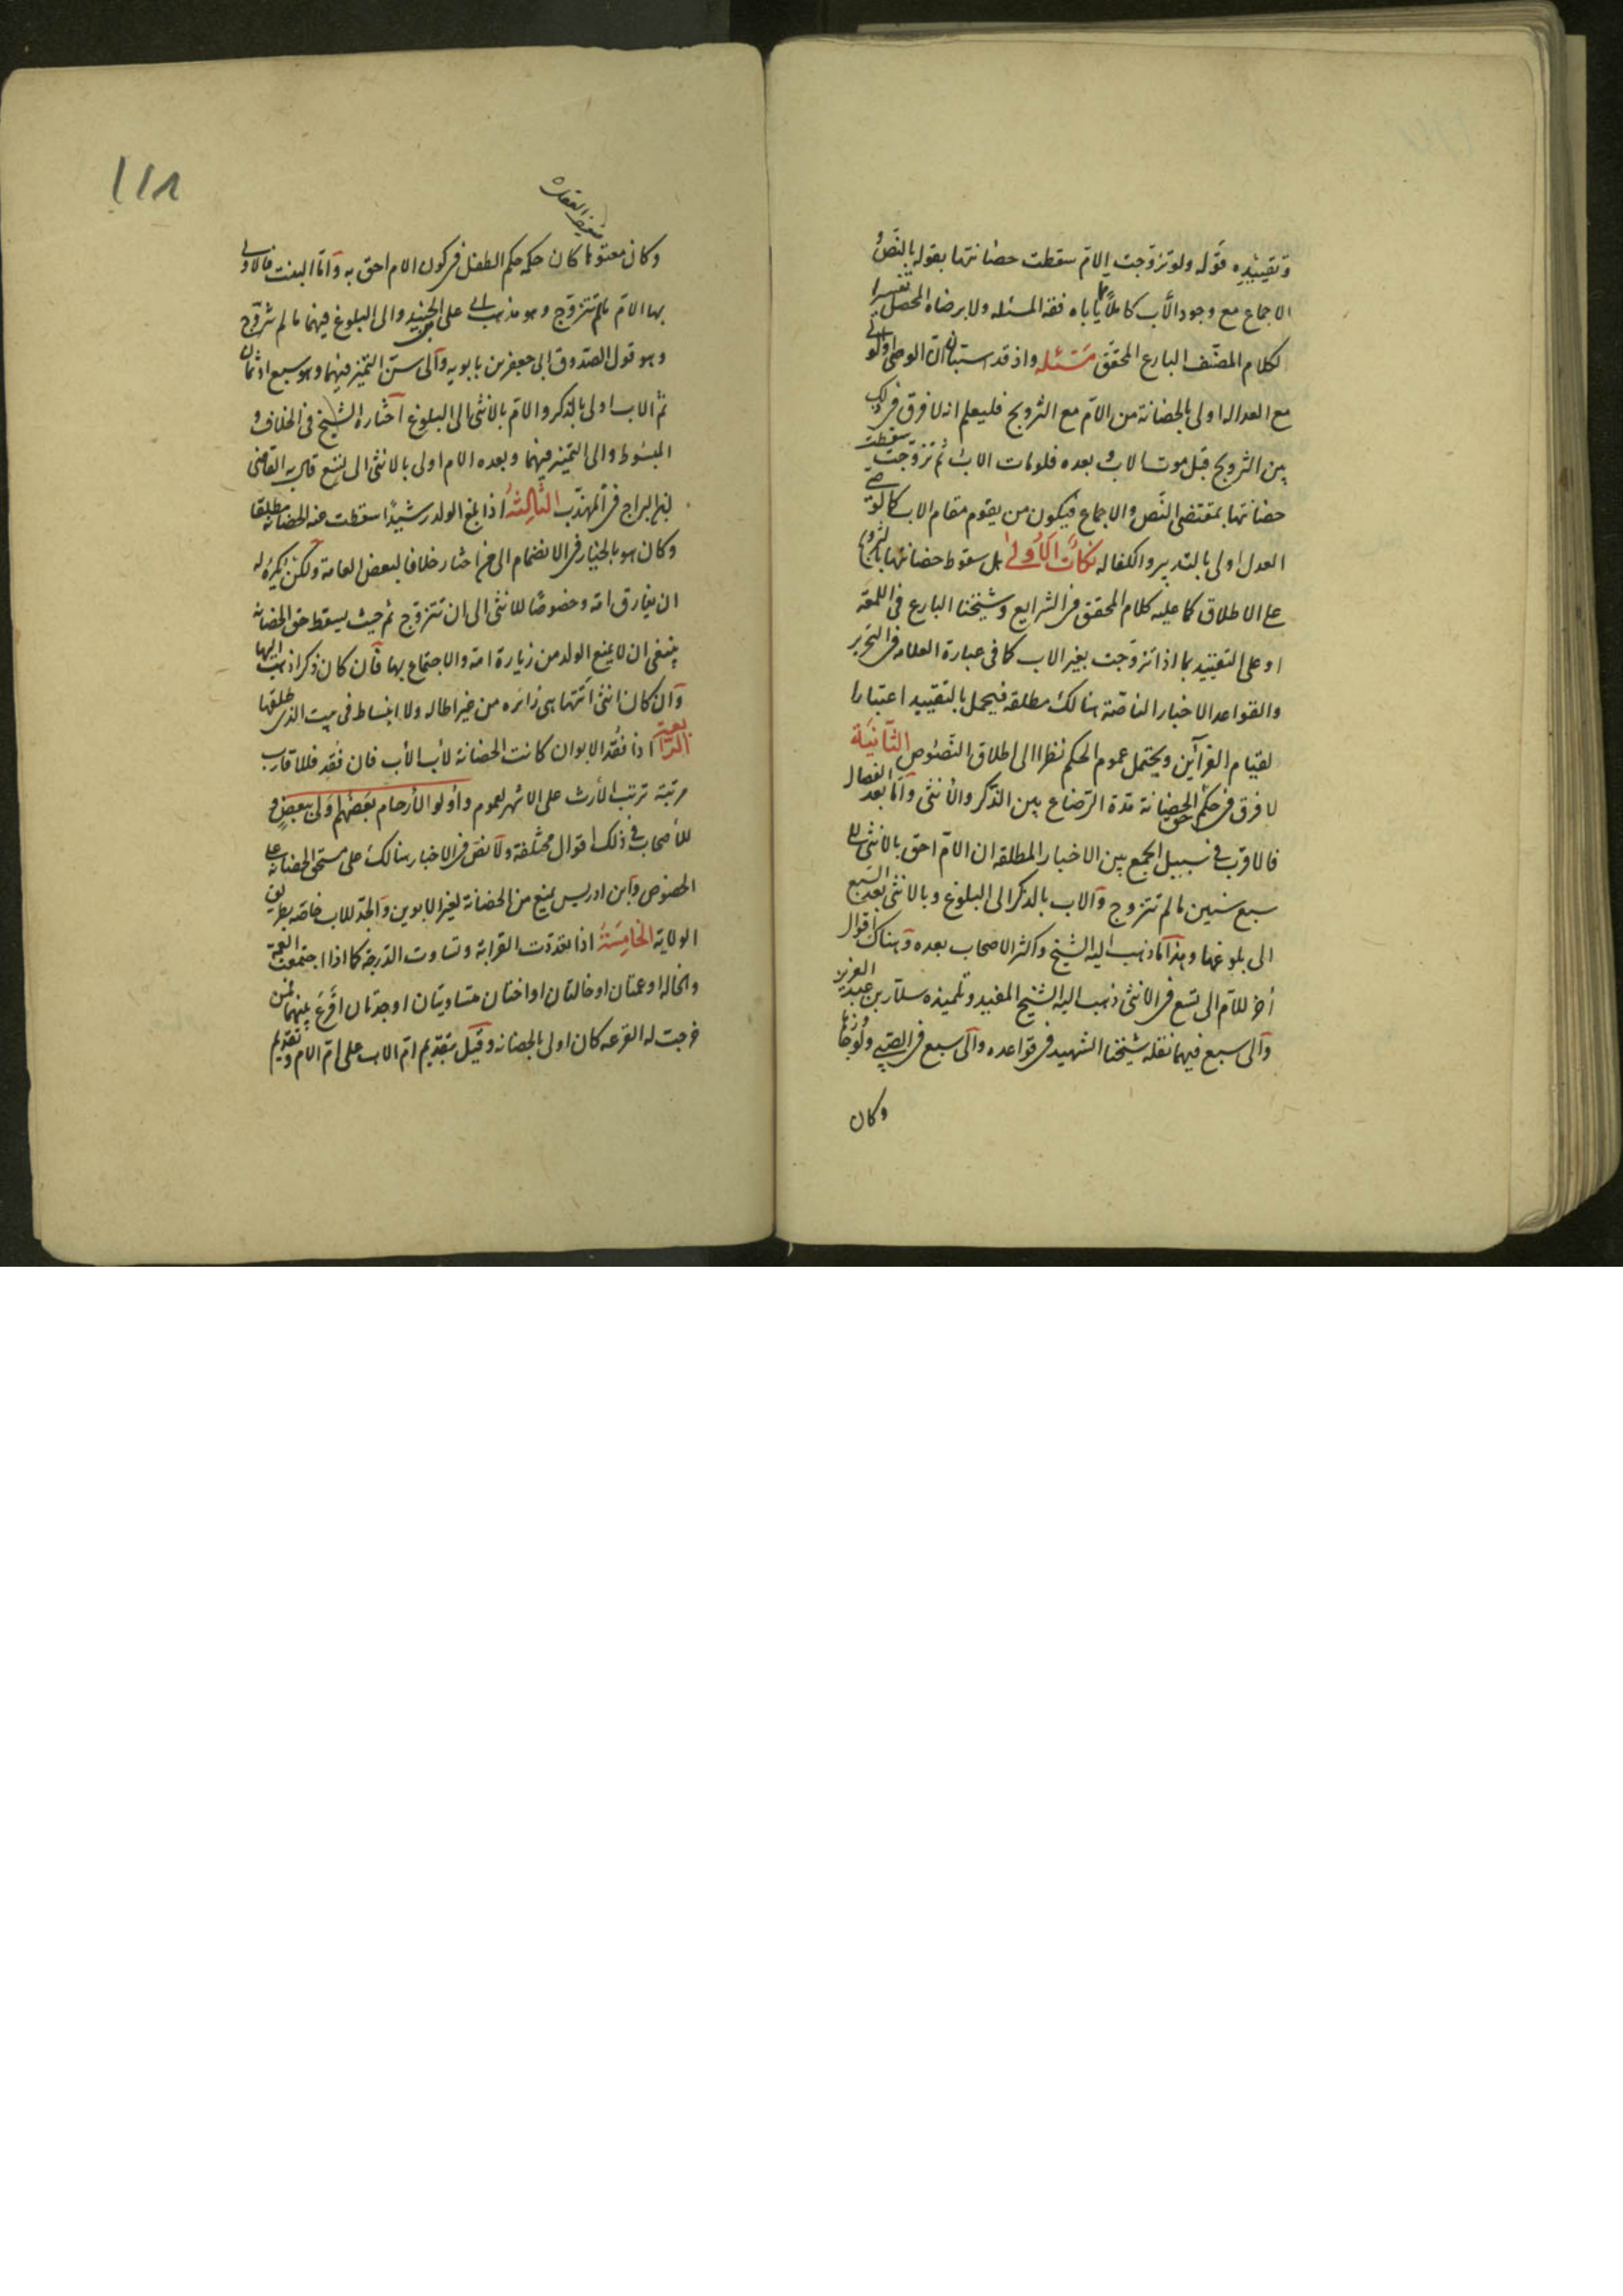 وتقييده قوله ولو تزوجت الام سقطت حضانتها بقوله بالنص و
الاجماع مع وجود الأب كاملا يأباه فقه المسئله ولا يرضاه المحصل تفسيرا
لكلام المصنف البارع المحقق مسئله واذ قد استبان ان الوصى اولى ولو
مع العداله اولى بالحضانة من الام مع التزويج فليعلم انه لا فرق فى ذلك
بين التزويج قبل موت الاب و بعده فلو مات الاب ثم تزوجت سقطت
حضانتها بمقتضى النص والاجماع فيكون من يقوم مقام الاب كالوصى
العدل اولى بالتدبير والكفاله نكات الأولى هل سقوط حضانتها بالتزويج
على الاطلاق كما عليه كلام المحقق فى الشرايع وشيخنا البارع فى اللمعه
او على التقييد بما اذا تزوجت بغير الاب كما فى عبارة العلامه فى التحرير
والقواعد الاخبار الناصة هنالك مطلقه فيحمل بالتقييد اعتبارا
لقيام القرآئن ويحتمل عموم الحكم نظرا الى اطلاق النصوص الثانية
لا فرق فى حكم الحضانة مدة الرضاع بين الذكر والأنثى وأما بعد الفصال
فالاقرب فى سبيل الجمع بين الاخبار المطلقه ان الام احق بالانثى الى
سبع سنين ما لم تتزوج والاب بالذكر الى البلوغ وبالانثى بعد السبع
الى بلوغها وهذا ما ذهب اليه الشيخ واكثر الاصحاب بعده وهناك اقوال
أخر للام الى تسع فى الانثى ذهب اليه الشيخ المفيد وتلميذه سلار بن عبد العزيز
والى سبع فيهما نقله شيخنا الشهيد فى قواعده والى سبع فى الصبى ولو جاوزها
وكان
١١٨
ضعيف العقل
وكان معتوها كان حكمه حكم الطفل فى كون الام احق به وأما البنت فالاولى
بها الام ما لم تتزوج وهو مذهب ابى على الجنيد والى البلوغ فيهما ما لم تتزوج
وهو قول الصدوق ابى جعفر بن بابويه والى سن التميز فيهما وهو سبع او ثمان
ثم الاب اولى بالذكر والام بالانثى الى البلوغ اختاره الشيخ فى الخلاف و
المبسوط والى التميز فيهما وبعده الام اولى بالانثى الى تسع قال به القاضى
ابن البراج فى المهذب الثالثة اذا بلغ الولد رشيدا سقطت عنه الحضانة مطلقا
وكان هو بالخيار فى الانضمام الى من اختار خلافا لبعض العامه ولكن يكره له
ان يفارق امه وخصوصا للانثى الى ان تتزوج ثم حيث يسقط حق الحضانه
ينبغى ان لا يمنع الولد من زيارة امه والاجتماع بها فان كان ذكرا ذهب اليها
وان كان انثى اتتها هى زائره من غير اطاله ولا انبساط فى بيت الذى طلقها
الرابعة اذا فقد الابوان كانت الحضانة لأب الأب فان فقد فللاقارب
مرتبة ترتب الأرث على الاشهر لعموم وأولو الأرحام بعضهم أولى ببعض و
للأصحاب فى ذلك اقوال مختلفة ولا نص فى الاخبار هنالك على مستحق الحضانة على
الخصوص وابن ادريس يمنع من الحضانة لغير الابوين والجد للاب خاصه بطريق
الولاية الخامسة اذا تعددت القرابة وتساوت الدرجة كما اذا اجتمعت العمة
والخاله او عمتان او خالتان او اختان متساويتان او جدتان اقرع بينهما فمن
خرجت له القرعه كان اولى بالحضانه وقيل بتقديم ام الاب على ام الام وتقديم